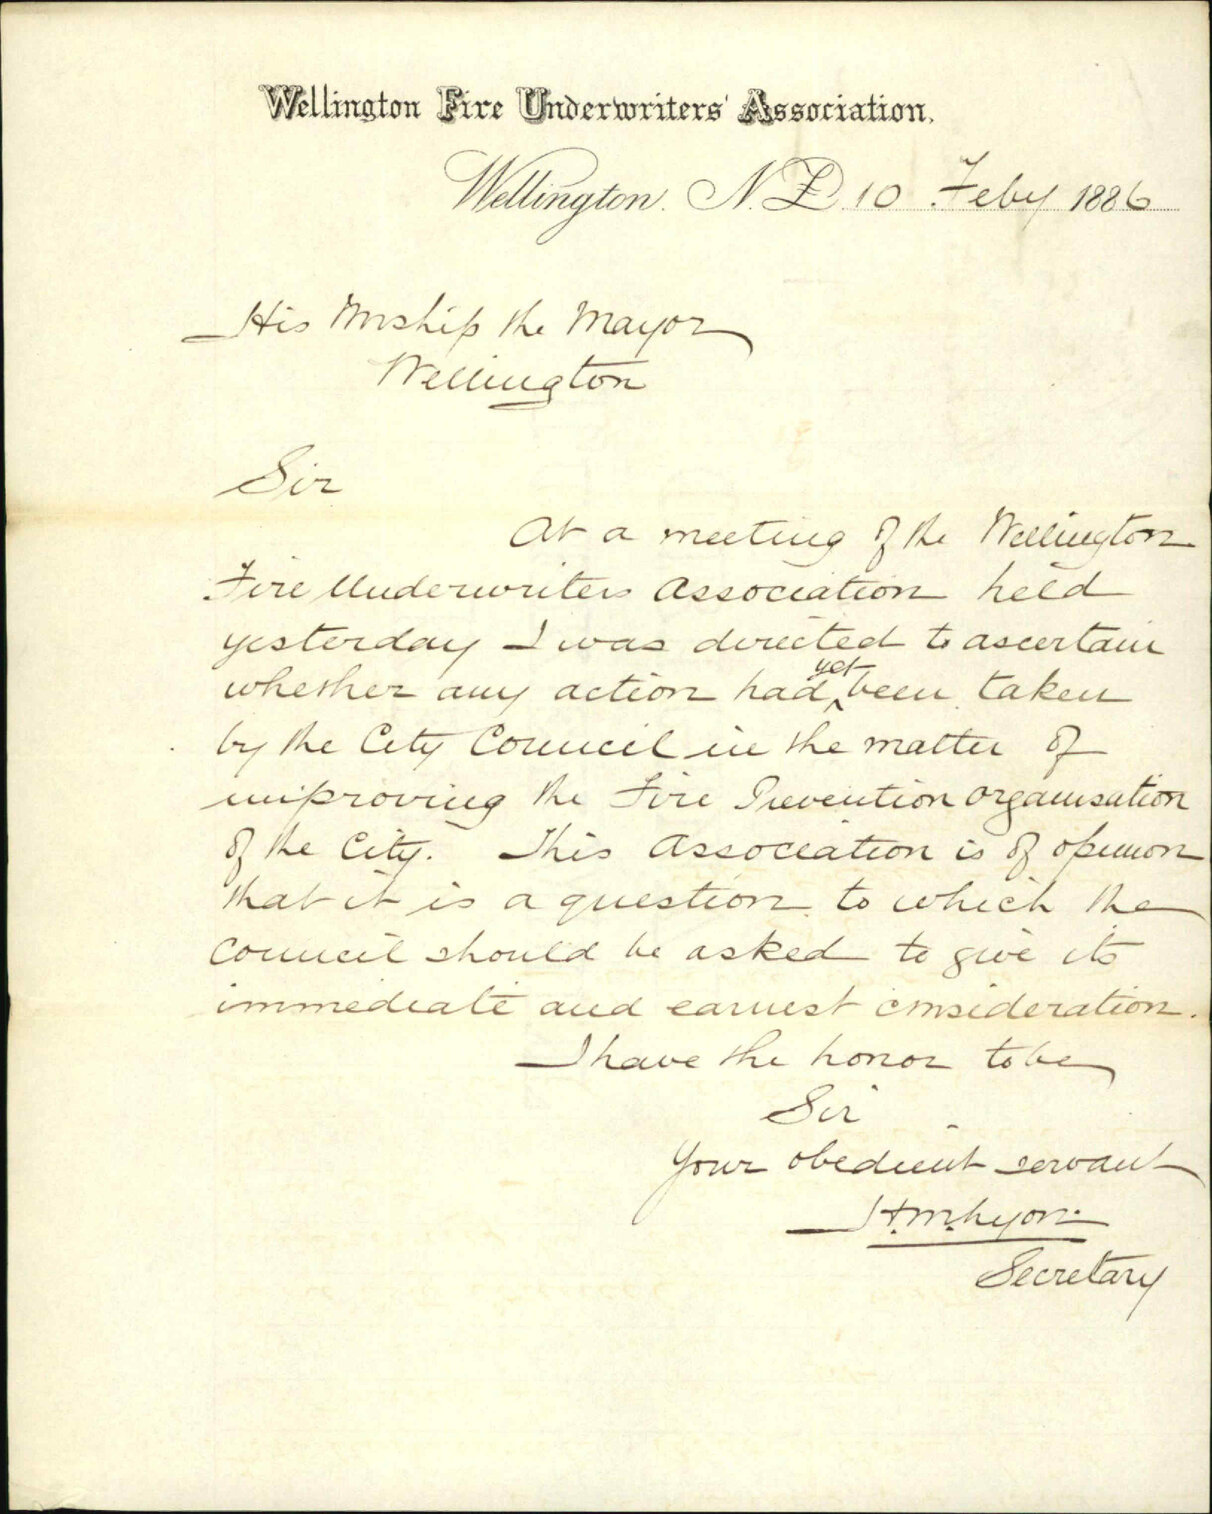 Wellington Fire Underwriters' Association.
Wellington. N.Z. 10 Feby 1886
His Worship the Mayor
Wellington
Sir
At a meeting of the Wellington
Fire Underwriters Association held
yesterday I was directed to ascertain
whether any action had yet been taken
by the City Council in the matter of
improving the Fire Prevention organisation
of the City. This Association is of opinion
that it is a question to which the
Council should be asked to give its
immediate and earnest consideration.
I have the honor to be
Sir
Your obedient servant
H.M. Lyon
Secretary